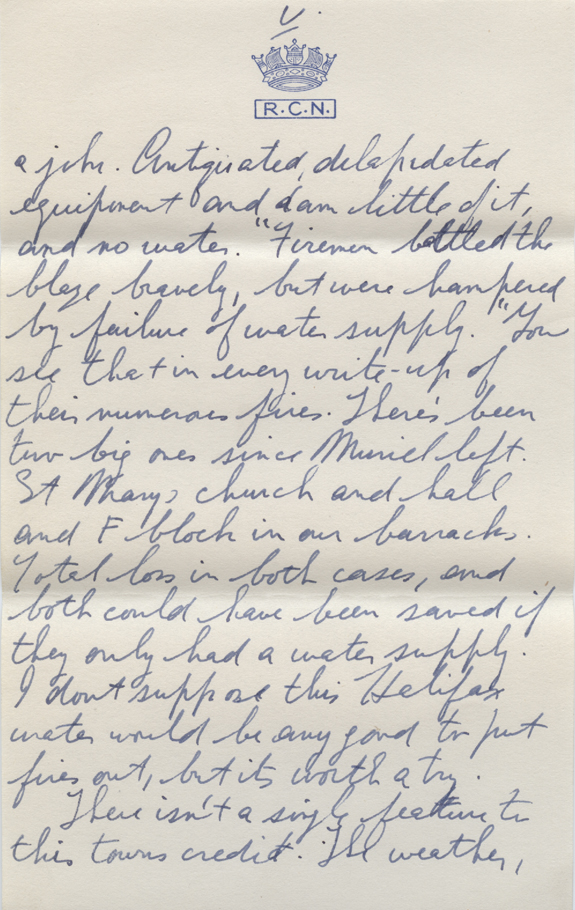 V.
R.C.N.
a john. Antiquated, delapidated
equipment and dam little of it,
and no water. "Firemen battled the
blaze bravely, but were hampered
by failure of water supply." You
see that in every write-up of
their numerous fires. There's been
two big ones since Muriel left.
St Marys church and hall
and F block in our barracks.
Total loss in both cases, and
both could have been saved if
they only had a water supply.
I dont suppose this Halifax
water would be any good to put
fires out, but its worth a try.
There isn't a single feature to
this towns credit. The weather,